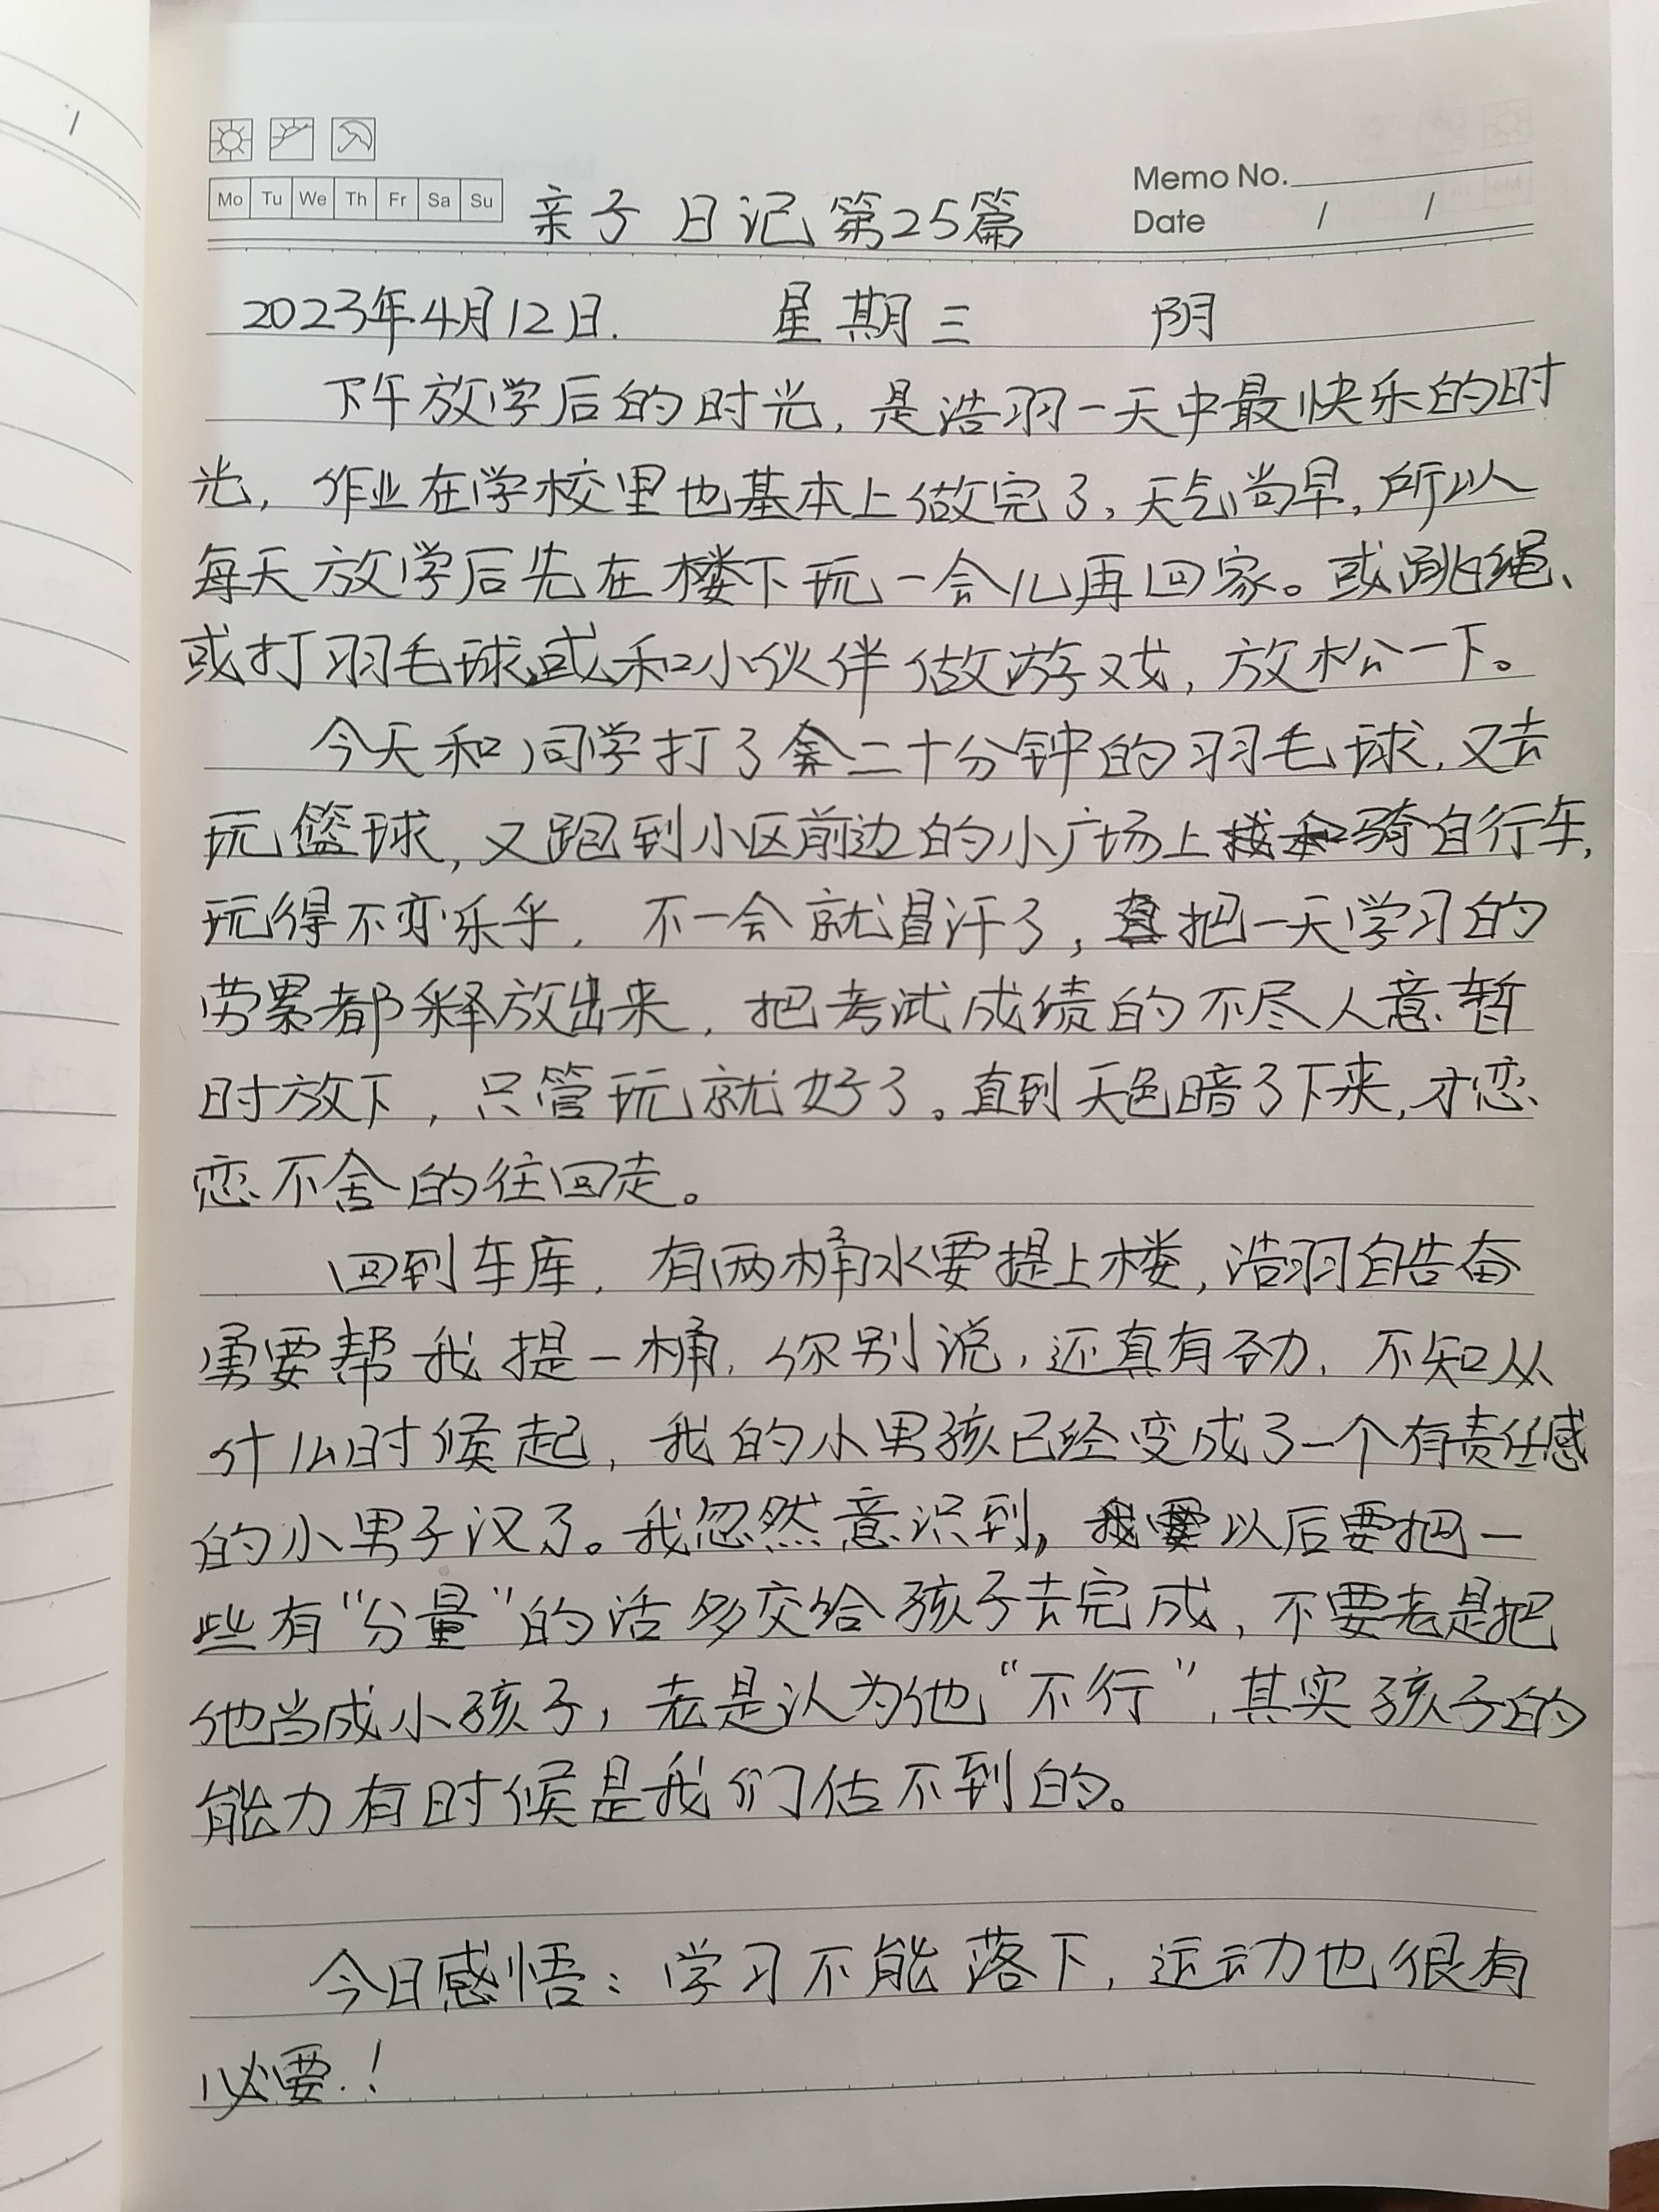 Mo Tu We Th Fr Sa Su
亲子日记第25篇
Memo No.
Date / /
2023年4月12日. 星期三 阴
下午放学后的时光，是浩羽一天中最快乐的时
光，作业在学校里也基本上做完了，天气尚早，所以
每天放学后先在楼下玩一会儿再回家。或跳绳、
或打羽毛球或和小伙伴做游戏，放松一下。
今天和同学打了二十分钟的羽毛球，又去
玩篮球，又跑到小区前边的小广场上骑自行车，
玩得不亦乐乎，不一会就冒汗了，把一天学习的
劳累都释放出来，把考试成绩的不尽人意暂
时放下，只管玩就好了。直到天色暗了下来，才恋
恋不舍的往回走。
回到车库，有两桶水要提上楼，浩羽自告奋
勇要帮我提一桶，你别说，还真有劲，不知从
什么时候起，我的小男孩已经变成了一个有责任感
的小男子汉了。我忽然意识到，以后要把一
些有“分量”的活多交给孩子去完成，不要老是把
他当成小孩子，老是认为他“不行”，其实孩子的
能力有时候是我们估不到的。
今日感悟：学习不能落下，运动也很有
必要！